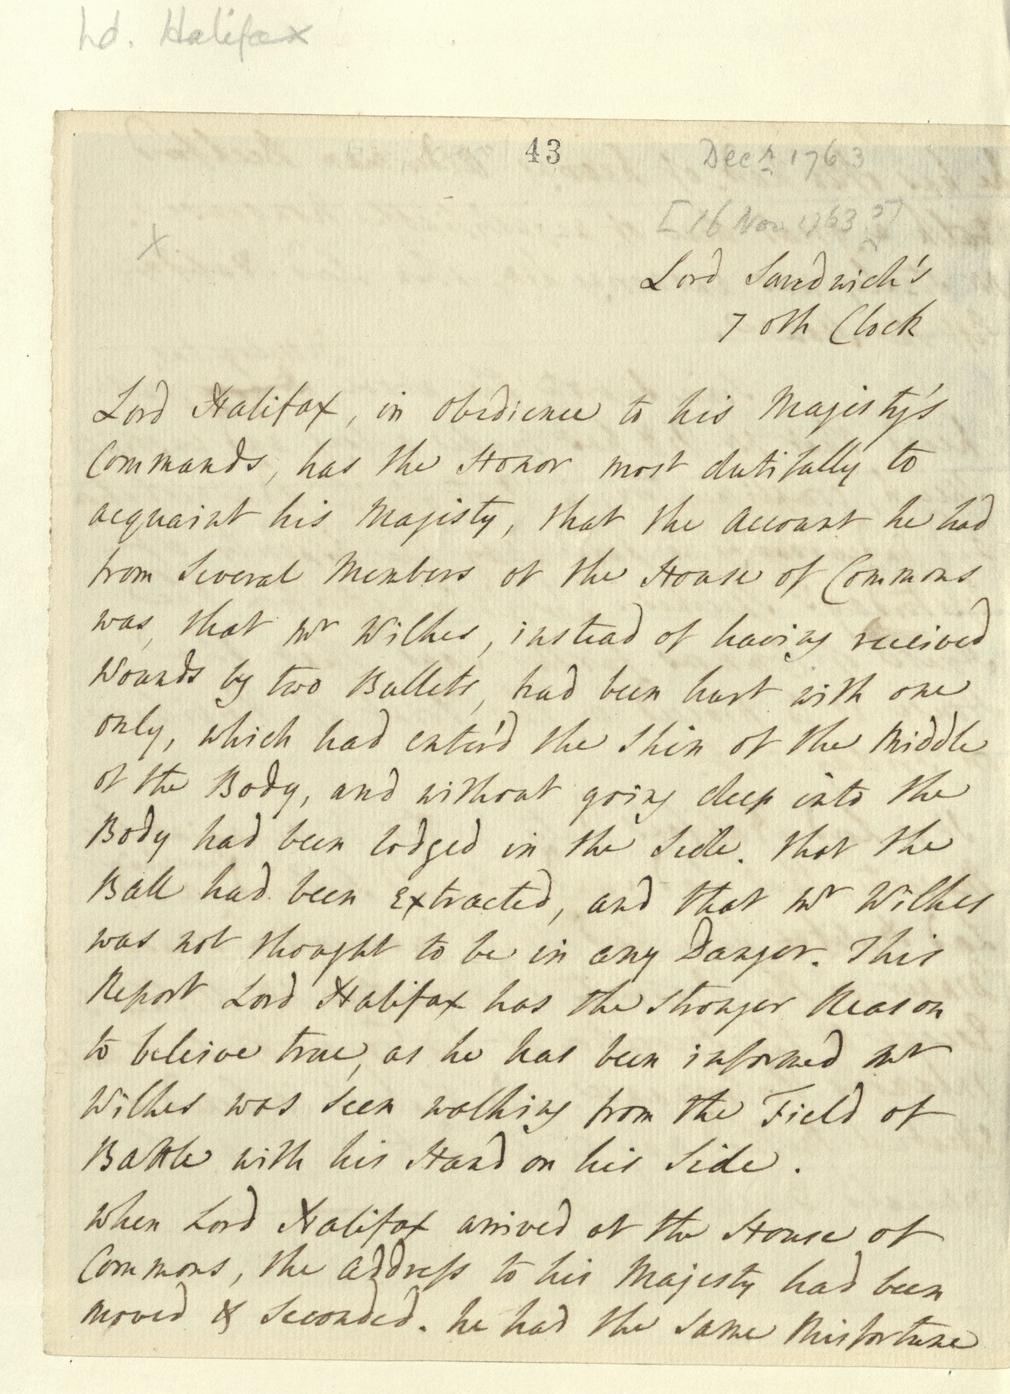 Ld. Halifax
43
Decr. 1763
[16 Nov 1763?]
x
Lord Sandwich's
7 oth Clock
Lord Halifax, in obedience to his Majesty's
Commands, has the Honor most dutifully to
acquaint his Majesty, that the Account he had
from Several Members of the House of Commons
was, that Mr Wilkes, instead of having received
Wounds by two Bullets, had been hurt with one
only, which had enter'd the Skin of the Middle
of the Body, and without going deep into the
Body had been lodged in the Side. that the
Ball had been Extracted, and that Mr Wilkes
was not thought to be in any Danger. This
Report Lord Halifax has the stronger Reason
to beleive true, as he has been inform'd Mr
Wilkes was seen walking from the Field of
Battle with his Hand on his Side.
When Lord Halifax arrived at the House of
Commons, the Address to his Majesty had been
moved & Seconded. he had the same Misfortune